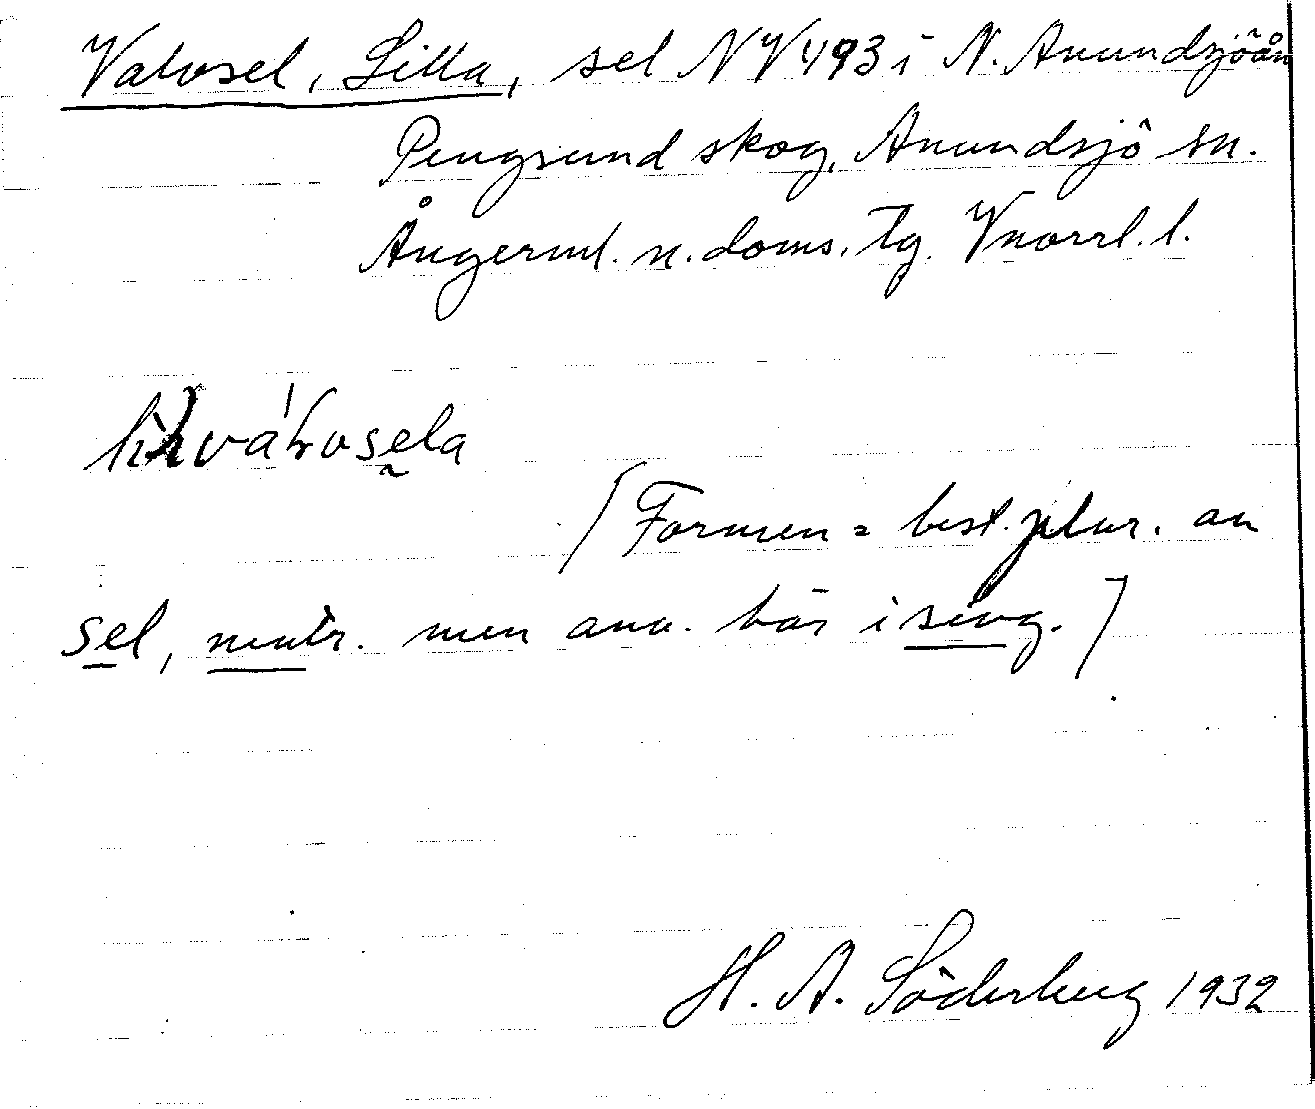 Valvsel, Lilla, sel NV 493 i N. Anundsjöån
Pengsund skog, Anundsjö sn.
Ångerml. n. doms. tg. Vnorrl. l.
(Formen = best. plur. av
sel, neutr. men anv. här i sing.)
H. A. Söderberg 1932